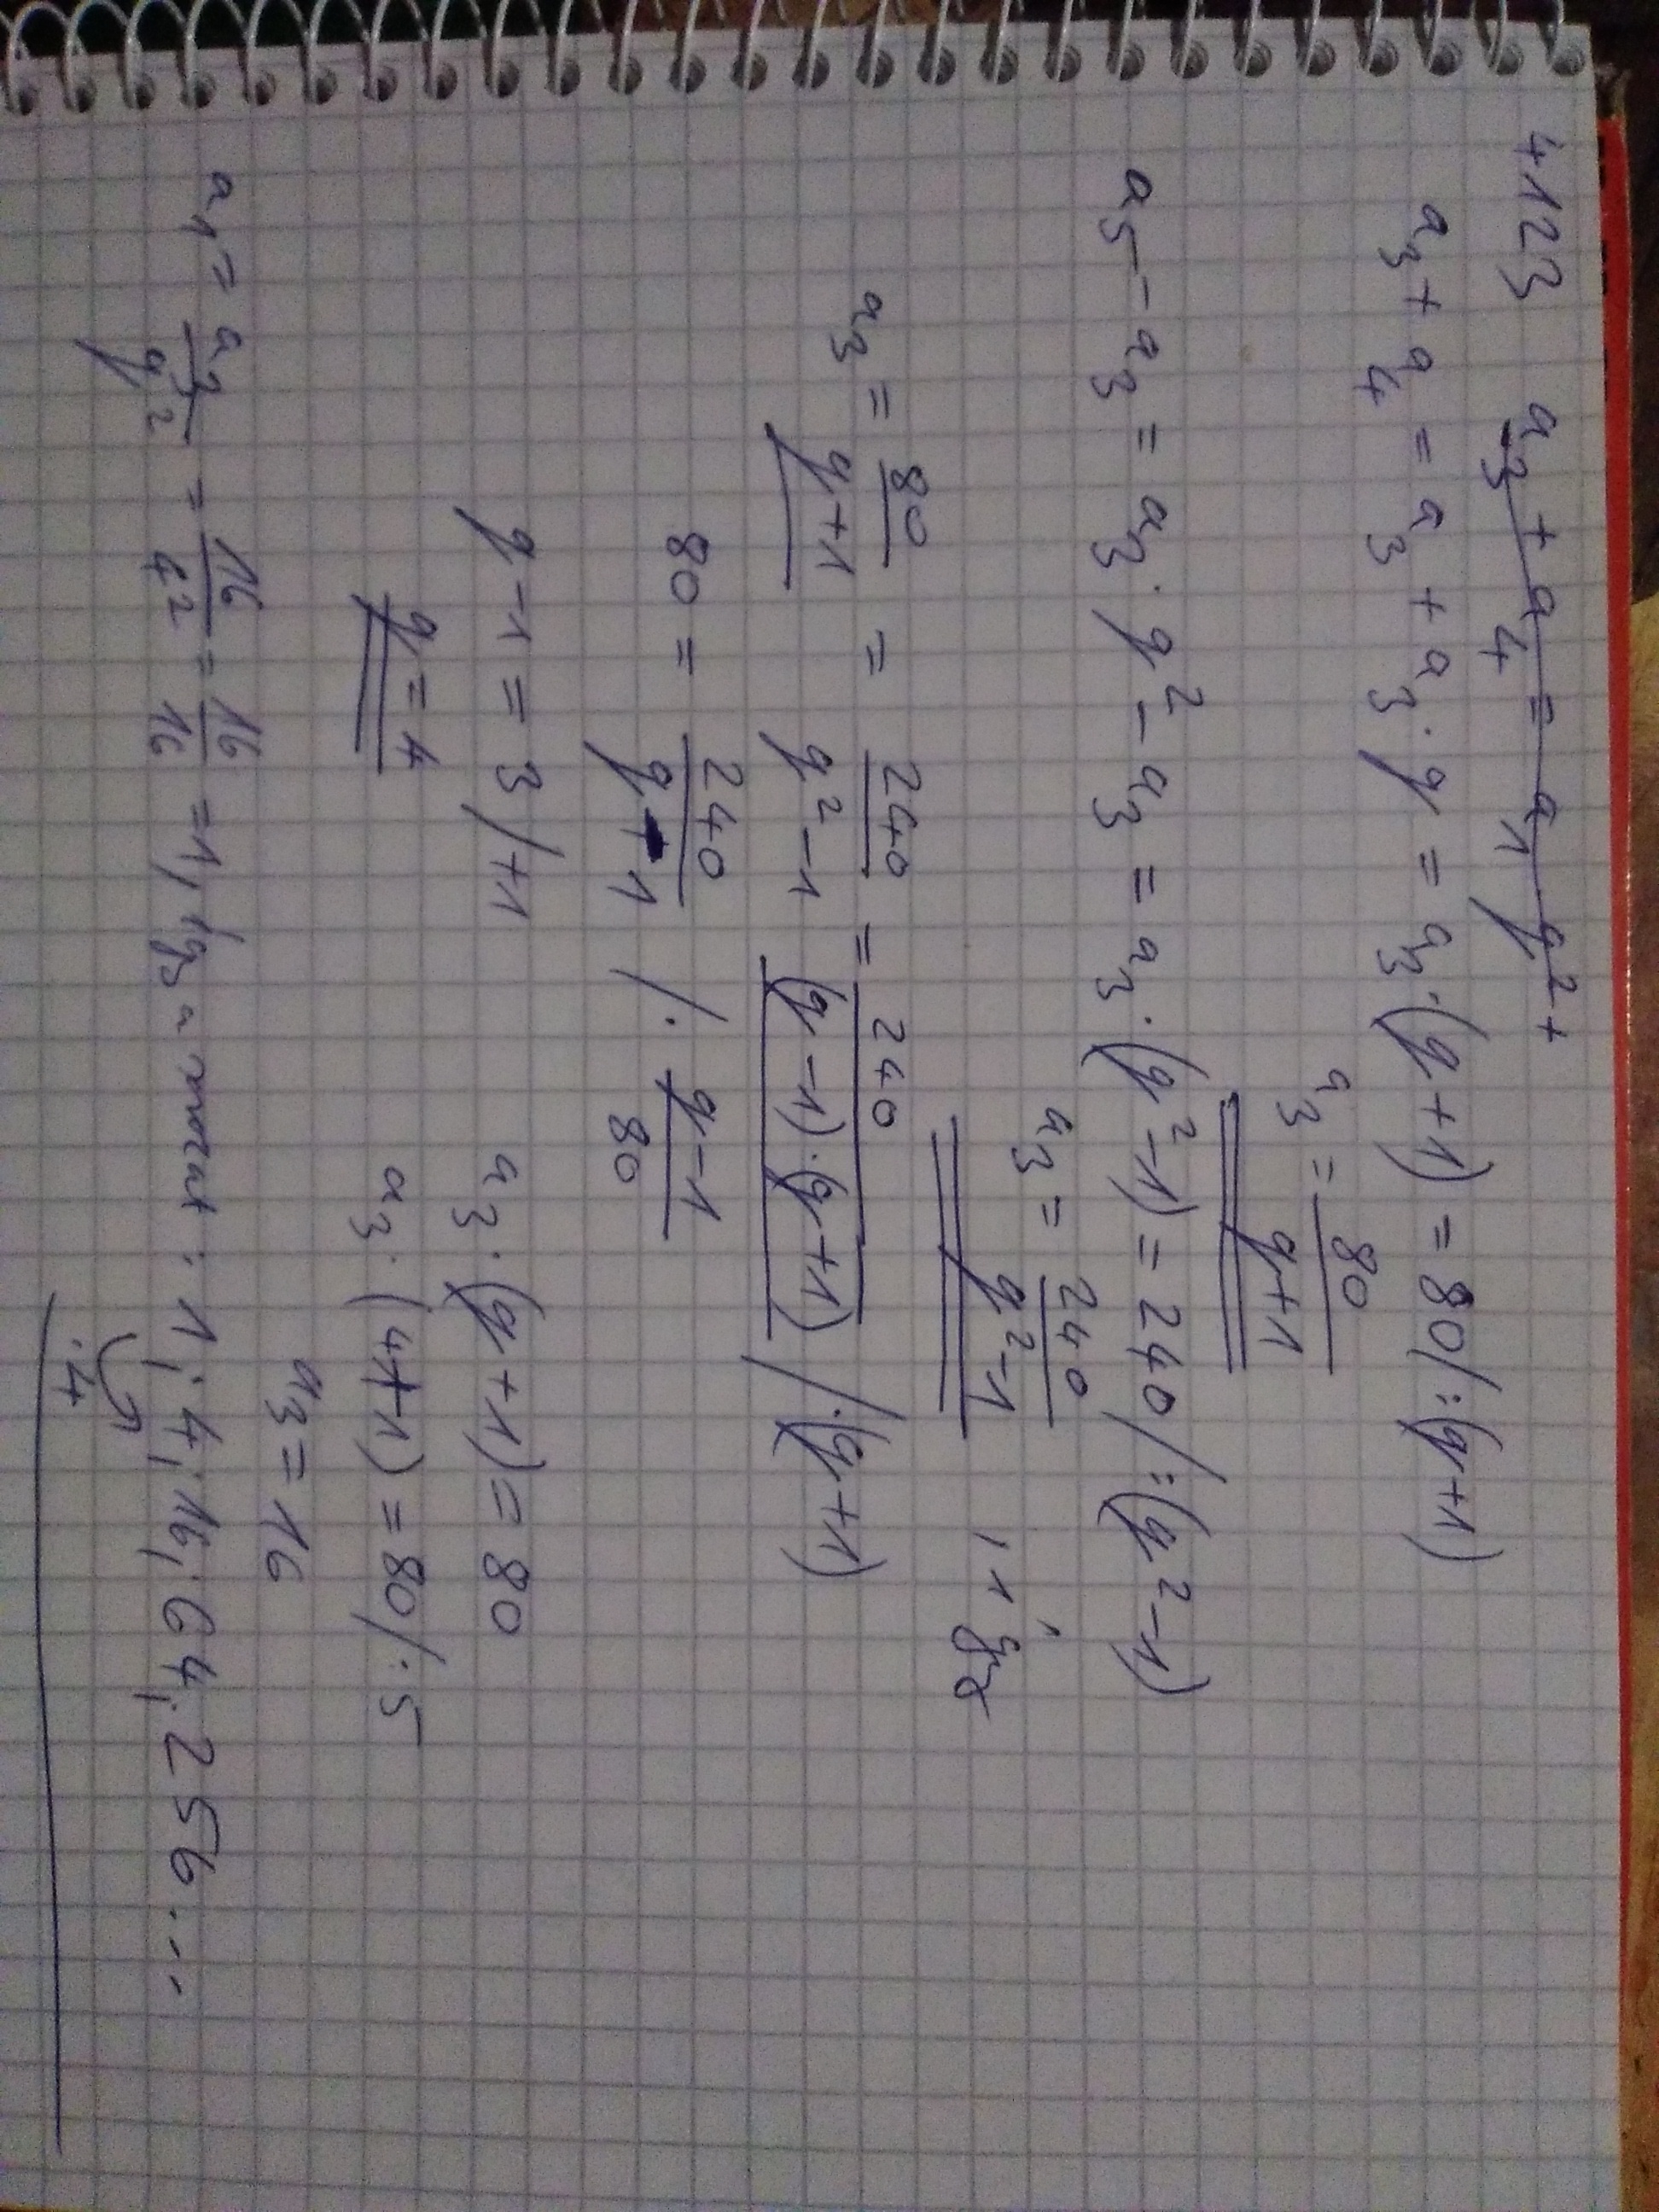 4123 a₃ + a₄ = a₁q² +
a₃ + a₄ = a₃ + a₃·q = a₃·(q+1) = 80 /:(q+1)
a₃ = 80/(q+1)
a₅ - a₃ = a₃·q² - a₃ = a₃·(q²-1) = 240 /:(q²-1)
a₃ = 240/(q²-1)
a₃ = 80/(q+1) = 240/(q²-1) = 240/((q-1)·(q+1)) /·(q+1)
80 = 240/(q-1) /· (q-1)/80
q - 1 = 3 /+1
q = 4
a₃·(q+1) = 80
a₃·(4+1) = 80 /:5
a₃ = 16
a₁ = a₃/q² = 16/4² = 16/16 = 1, a : 1; 4; 16; 64; 256...
·4